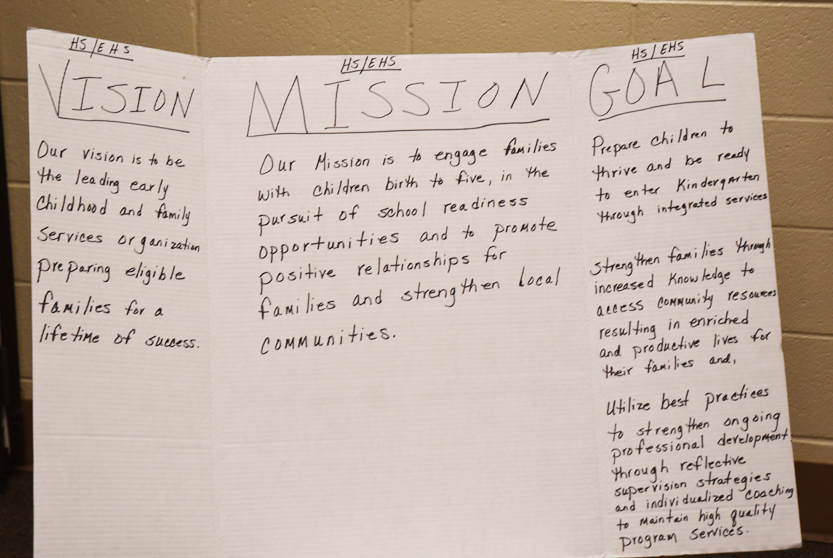 HS/EHS
VISION
Our vision is to be
the leading early
Childhood and family
Services organization
preparing eligible
families for a
lifetime of success.
HS/EHS
MISSION
Our Mission is to engage families
with children birth to five, in the
pursuit of school readiness
opportunities and to promote
positive relationships for
families and strengthen local
communities.
HS/EHS
GOAL
Prepare children to
thrive and be ready
to enter Kindergarten
through integrated services
Strengthen families through
increased Knowledge to
access community resources
resulting in enriched
and productive lives for
their families and,
Utilize best practices
to strengthen ongoing
professional development
through reflective
supervision strategies
and individualized coaching
to maintain high quality
program services.